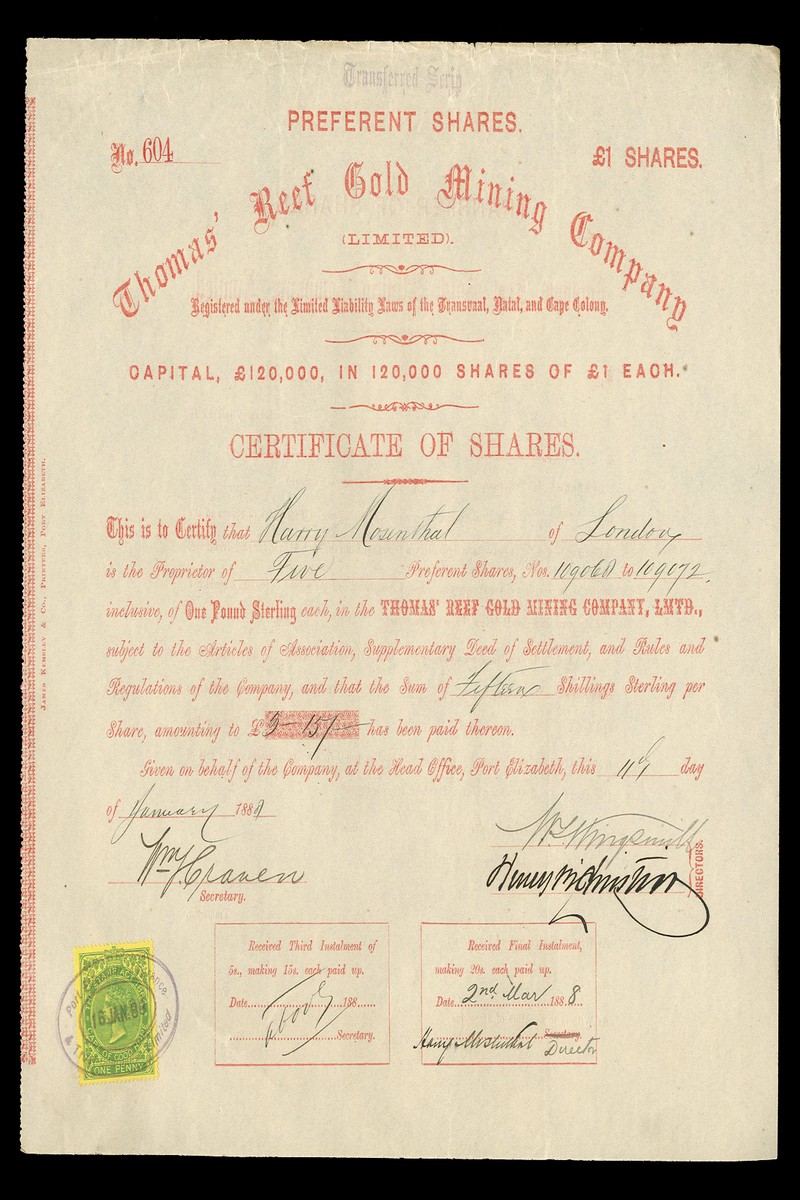 Transferred Scrip
PREFERENT SHARES.
No. 604
£1 SHARES.
Thomas' Reef Gold Mining Company
(LIMITED).
Registered under the Limited Liability Laws of the Transvaal, Natal, and Cape Colony.
CAPITAL, £120,000, IN 120,000 SHARES OF £1 EACH.
CERTIFICATE OF SHARES.
This is to Certify that Harry Mosenthal of London
is the Proprietor of Five Preferent Shares, Nos. 109068 to 109072,
inclusive, of One Pound Sterling each, in the THOMAS' REEF GOLD MINING COMPANY, LMTD.,
subject to the Articles of Association, Supplementary Deed of Settlement, and Rules and
Regulations of the Company, and that the Sum of Fifteen Shillings Sterling per
Share, amounting to £3-15/- has been paid thereon.
Given on behalf of the Company, at the Head Office, Port Elizabeth, this 11th day
of January 188
Secretary.
DIRECTORS.
Received Third Instalment of
5s., making 15s. each paid up.
Date 188
Secretary.
Received Final Instalment,
making 20s. each paid up.
Date 2nd Mar 1888.
Harry Mosenthal Secretary.
Director
JAMES KEMSLEY & CO., PRINTERS, PORT ELIZABETH.
16 JAN 88
CAPE OF GOOD HOPE
ONE PENNY